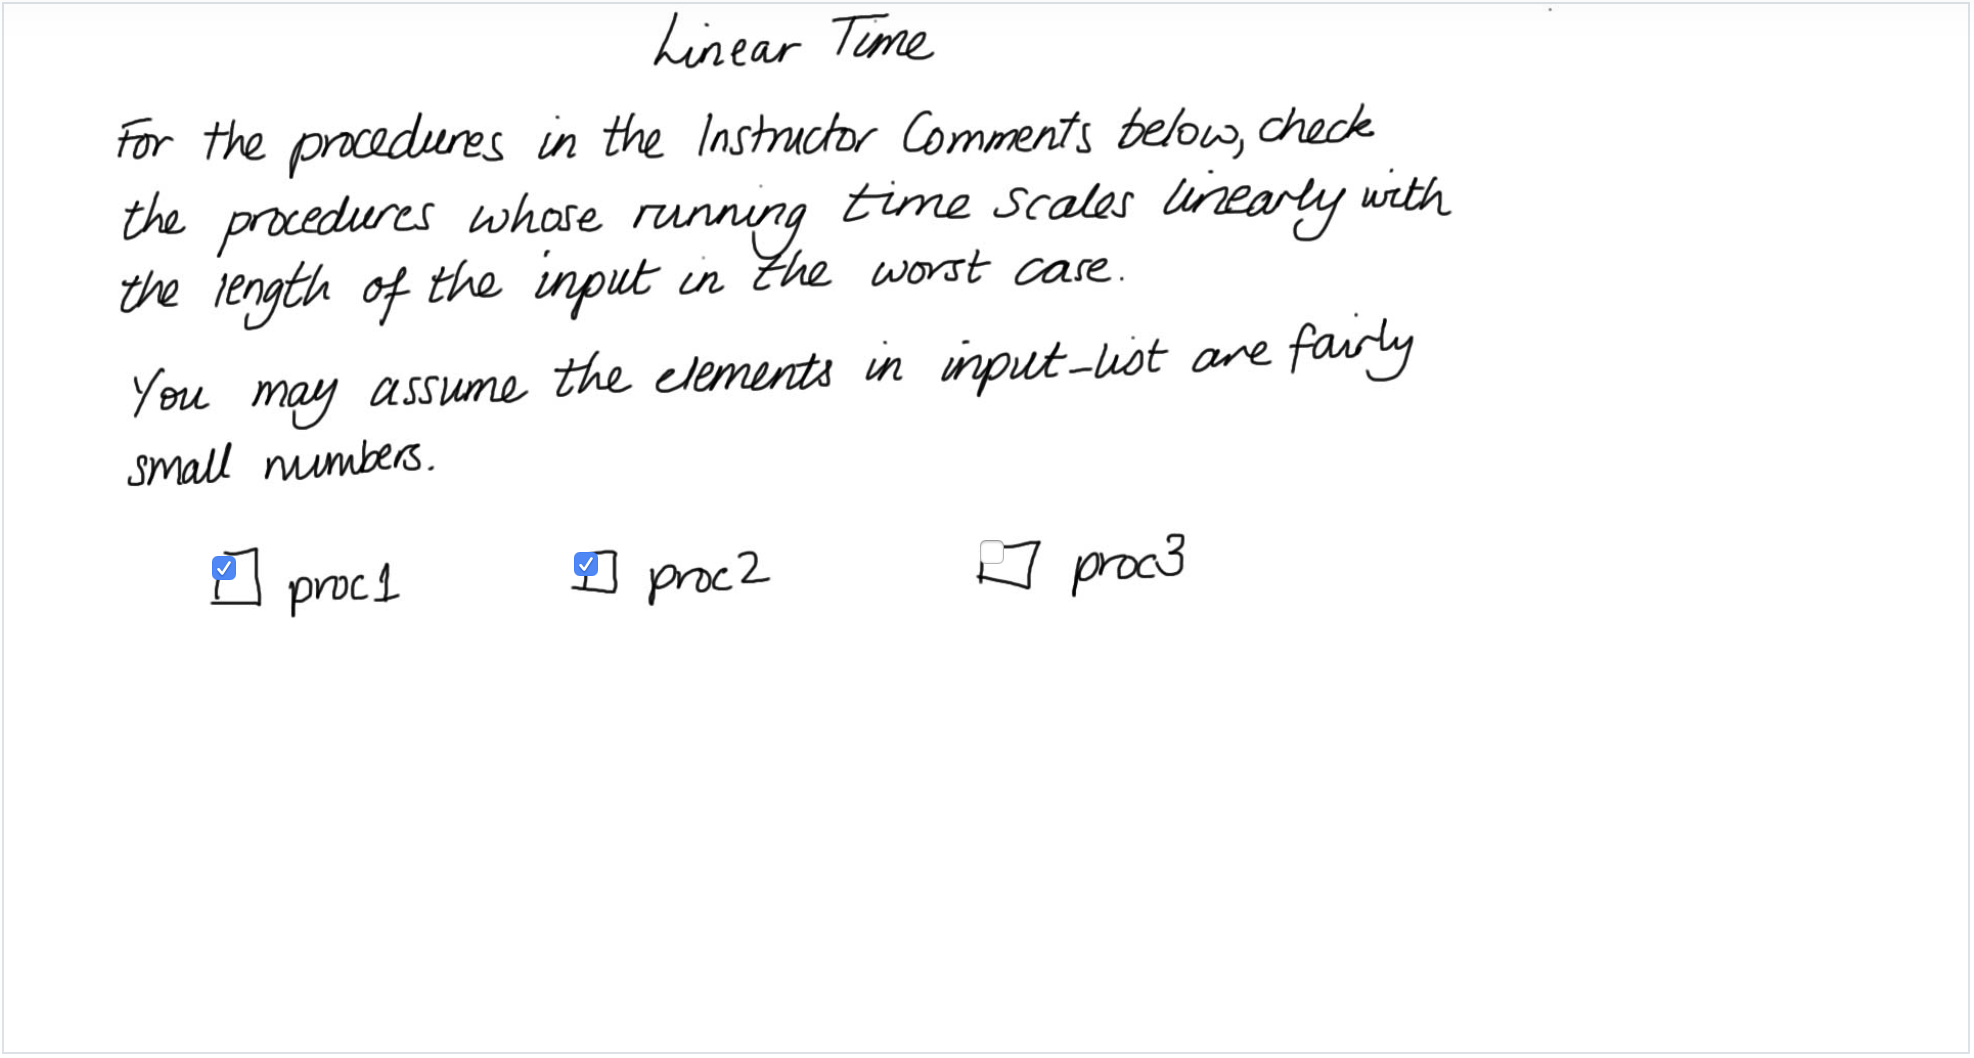 Linear Time
For the procedures in the Instructor Comments below, check
the procedures whose running time scales linearly with
the length of the input in the worst case.
You may assume the elements in input-list are fairly
small numbers.
proc1 proc2 proc3